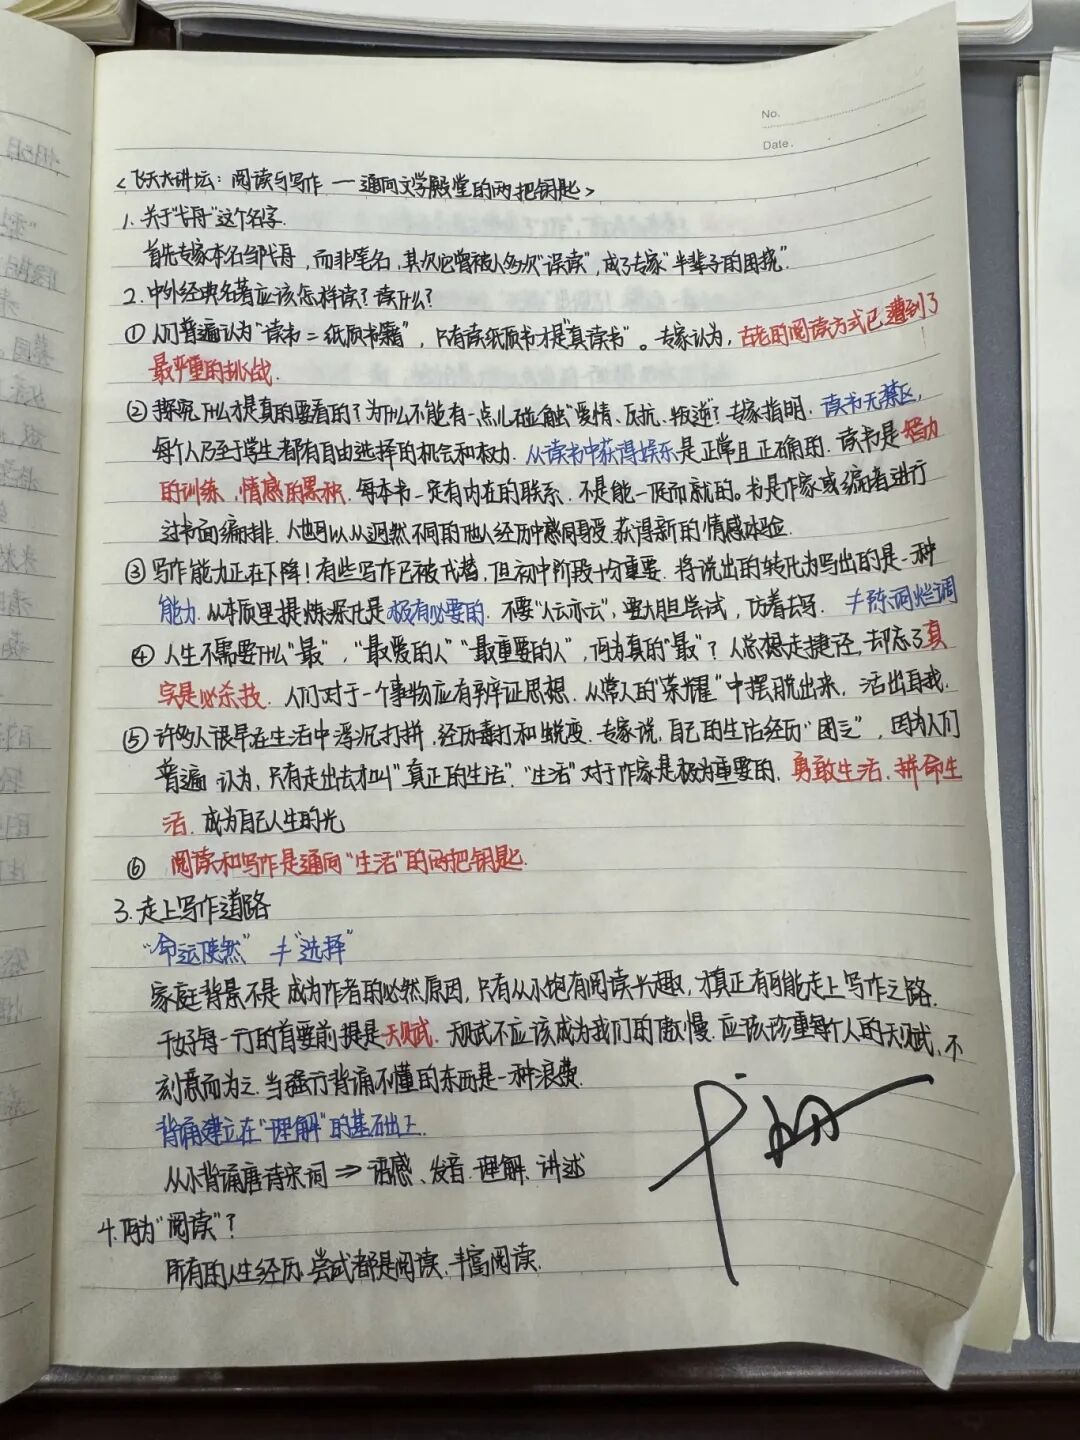 No.
Date.
<飞天大讲坛：阅读与写作 — 通向文学殿堂的两把钥匙>
1. 关于"弋舟"这个名字.
首先专家本名邹弋舟，而非笔名，其次它曾被人多次"误读"，成了专家"半辈子的困扰"
2. 中外经典名著应该怎样读？读什么？
① 人们普遍认为"读书=纸质书籍"，只有读纸质书才是"真读书"。专家认为，古老的阅读方式已遭到了
最严重的挑战.
② 探究什么才是真的要看的？为什么不能有一点儿碰触"爱情、反抗、叛逆"？专家指明，读书无禁区，
每个人乃至于学生都有自由选择的机会和权力. 从读书中获得娱乐是正常且正确的. 读书是智力
的训练，情感的累积. 每本书一定有内在的联系. 不是能一促而就的。书是作家或编者进行
过书面编排. 人也可以从迥然不同的他人经历中感同身受. 获得新的情感体验.
③ 写作能力正在下降！有些写作已被代替，但初中阶段十分重要. 将说出的转化为写出的是一种
能力. 从本质里提炼深化是极有必要的. 不要"人云亦云"，要大胆尝试，仿着去写. ≠陈词烂调
④ 人生不需要什么"最"，"最爱的人""最重要的人"，何为真的"最"？人总想走捷径，却忘了真
实是必杀技. 人们对于一个事物应有辩证思想. 从常人的"荣耀"中摆脱出来，活出自我.
⑤ 许多人很早在生活中浮沉打拼，经历毒打和蜕变. 专家说，自己的生活经历"匮乏"，因为人们
普遍认为，只有走出去才叫"真正的生活". "生活"对于作家是极为重要的. 勇敢生活. 拼命生
活. 成为自己人生的光
⑥ 阅读和写作是通向"生活"的两把钥匙.
3. 走上写作道路
"命运使然" ≠"选择"
家庭背景不是成为作者的必然原因，只有从小饱有阅读兴趣，才真正有可能走上写作之路.
干好每一行的首要前提是天赋. 天赋不应该成为我们的傲慢. 应该珍重每个人的天赋，不
刻意而为之. 当强行背诵不懂的东西是一种浪费.
背诵建立在"理解"的基础上.
从小背诵唐诗宋词 ⇒ 语感、发音. 理解. 讲述
4. 何为"阅读"？
所有的人生经历. 尝试都是阅读. 丰富阅读.